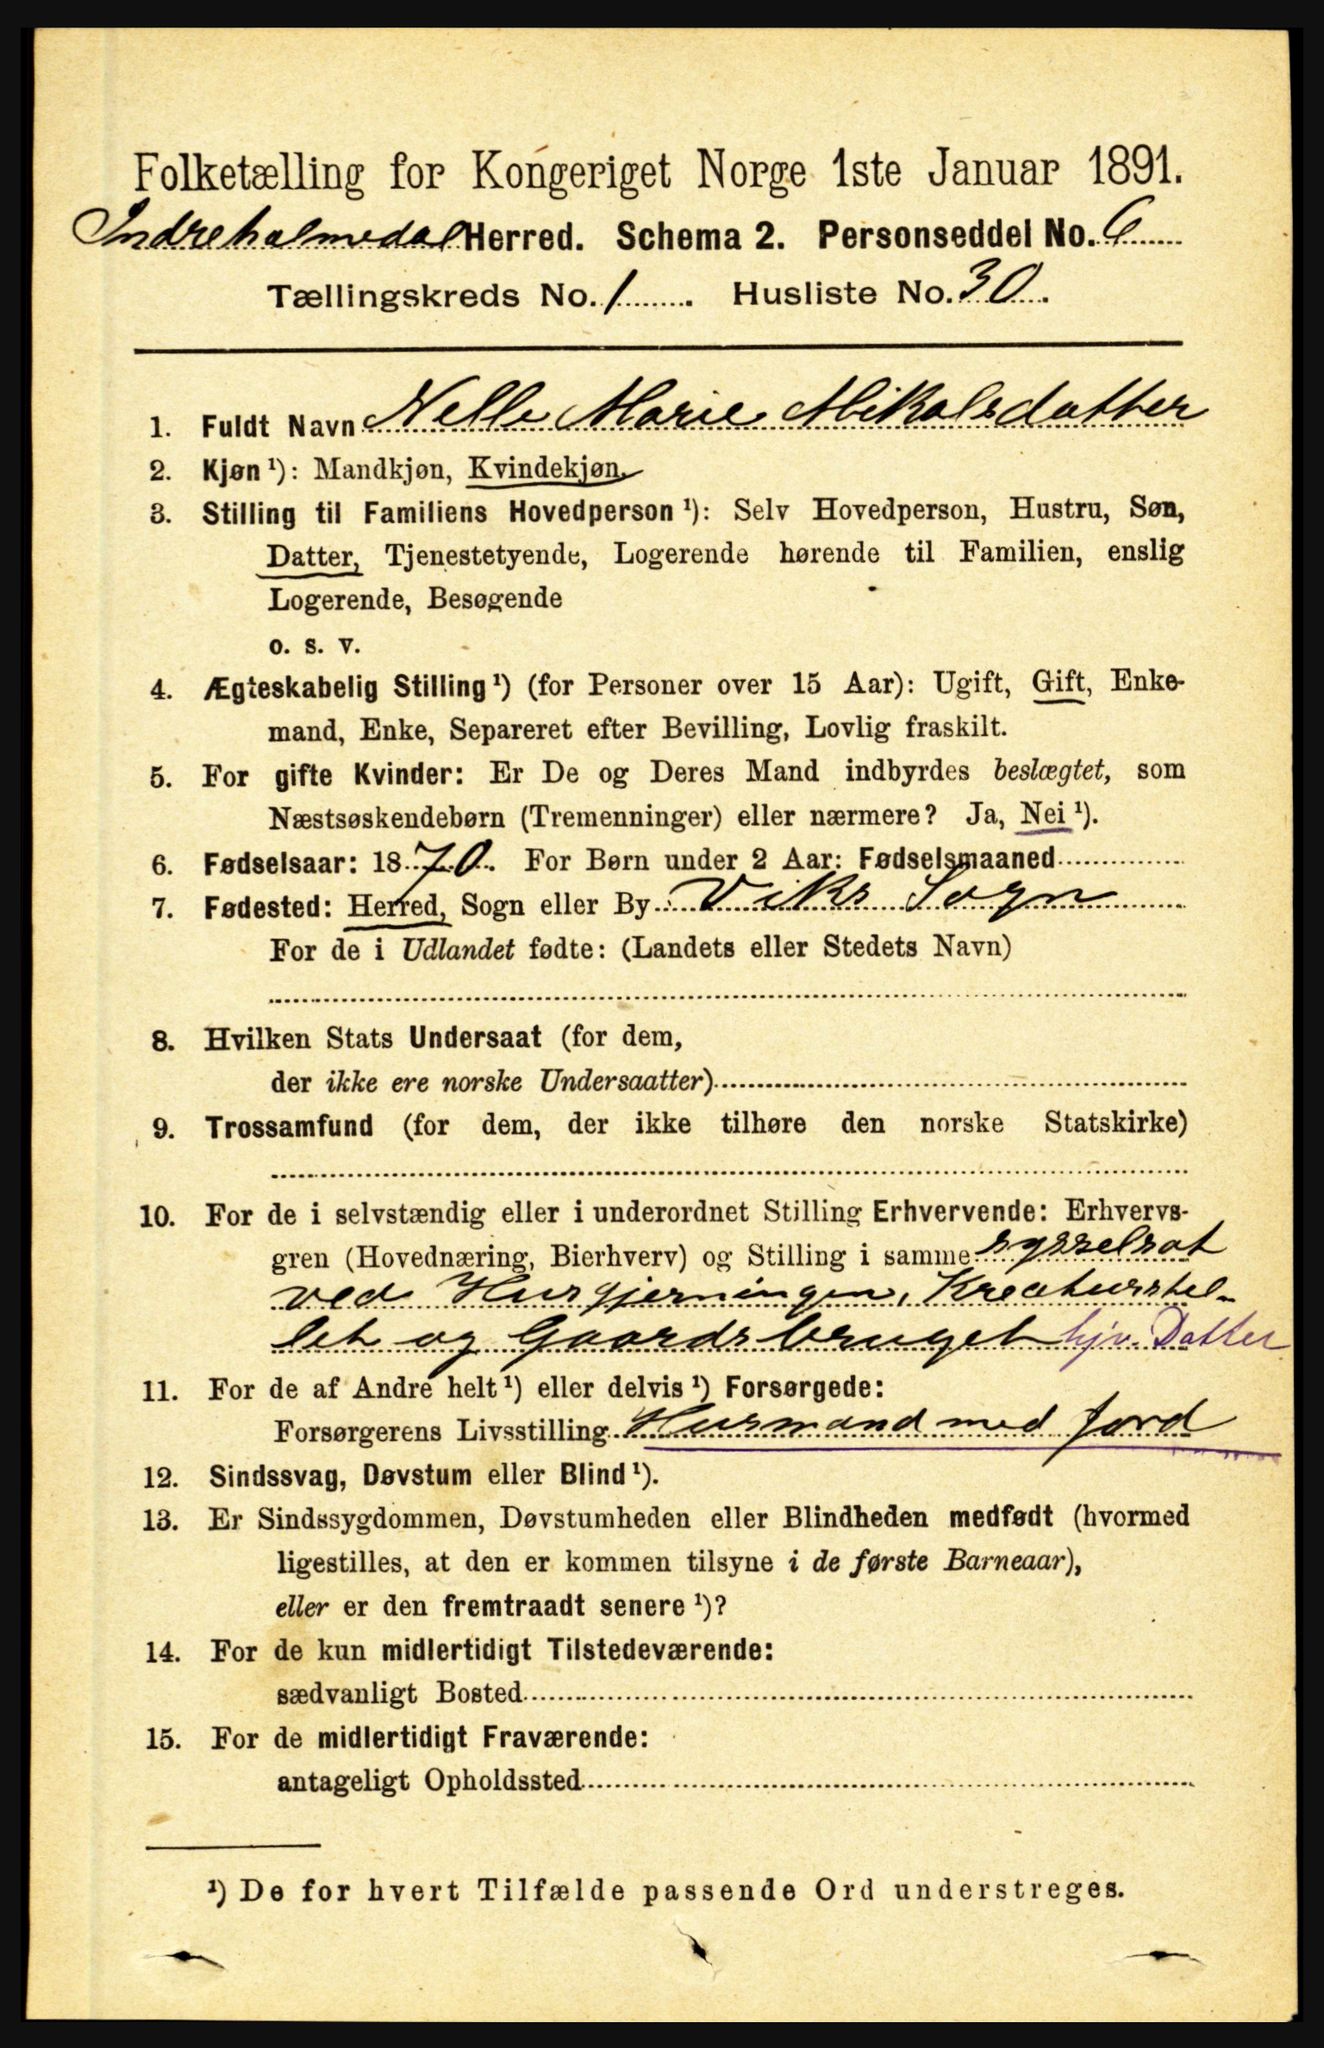 Folketælling for Kongeriget Norge 1ste Januar 1891.
Indreholmedal Herred. Schema 2. Personseddel No. 6
Tællingskreds No. 1. Husliste No. 30.
1. Fuldt Navn Nelle Marie Mikalsdatter
2. Kjøn ¹): Mandkjøn, Kvindekjøn.
3. Stilling til Familiens Hovedperson ¹): Selv Hovedperson, Hustru, Søn,
Datter, Tjenestetyende, Logerende hørende til Familien, enslig
Logerende, Besøgende
o. s. v.
4. Ægteskabelig Stilling ¹) (for Personer over 15 Aar): Ugift, Gift, Enke-
mand, Enke, Separeret efter Bevilling, Lovlig fraskilt.
5. For gifte Kvinder: Er De og Deres Mand indbyrdes beslægtet, som
Næstsøskendebørn (Tremenninger) eller nærmere? Ja, Nei ¹).
6. Fødselsaar: 1870. For Børn under 2 Aar: Fødselsmaaned
7. Fødested: Herred, Sogn eller By Viks Sogn
For de i Udlandet fødte: (Landets eller Stedets Navn)
8. Hvilken Stats Undersaat (for dem,
der ikke ere norske Undersaatter)
9. Trossamfund (for dem, der ikke tilhøre den norske Statskirke)
10. For de i selvstændig eller i underordnet Stilling Erhvervende: Erhvervs-
gren (Hovednæring, Bierhverv) og Stilling i samme sysselsat
ved Husgjerningen, Kreaturstel-
let og Gaardsbruget hjv. Datter
11. For de af Andre helt ¹) eller delvis ¹) Forsørgede:
Forsørgerens Livsstilling Husmand med Jord
12. Sindssvag, Døvstum eller Blind ¹).
13. Er Sindssygdommen, Døvstumheden eller Blindheden medfødt (hvormed
ligestilles, at den er kommen tilsyne i de første Barneaar),
eller er den fremtraadt senere ¹)?
14. For de kun midlertidigt Tilstedeværende:
sædvanligt Bosted
15. For de midlertidigt Fraværende:
antageligt Opholdssted
¹) De for hvert Tilfælde passende Ord understreges.